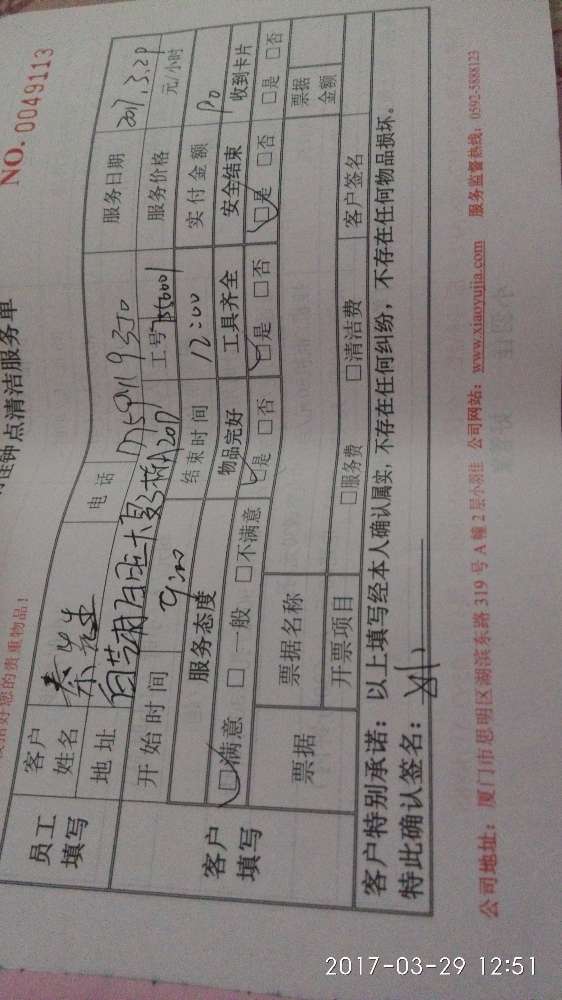 NO. 0049113
钟点清洁服务单
您的贵重物品!
员工填写
客户姓名 秦先生 电话 服务日期 2017.3.29
地址 工号 服务价格 元/小时
开始时间 9:00 结束时间 12:00 实付金额
客户填写
服务态度 物品完好 工具齐全 安全结束 收到卡片
□满意 □一般 □不满意 □是 □否 □是 □否 □是 □否 □是 □否
票据 票据名称 票据金额
开票项目 □服务费 □清洁费 客户签名
客户特别承诺:以上填写经本人确认属实,不存在任何纠纷,不存在任何物品损坏。
特此确认签名:
公司地址:厦门市思明区湖滨东路 319 号 A 幢 2 层小羽佳 公司网站:www.xiaoyujia.com 服务监督热线:0592-5888123
2017-03-29 12:51